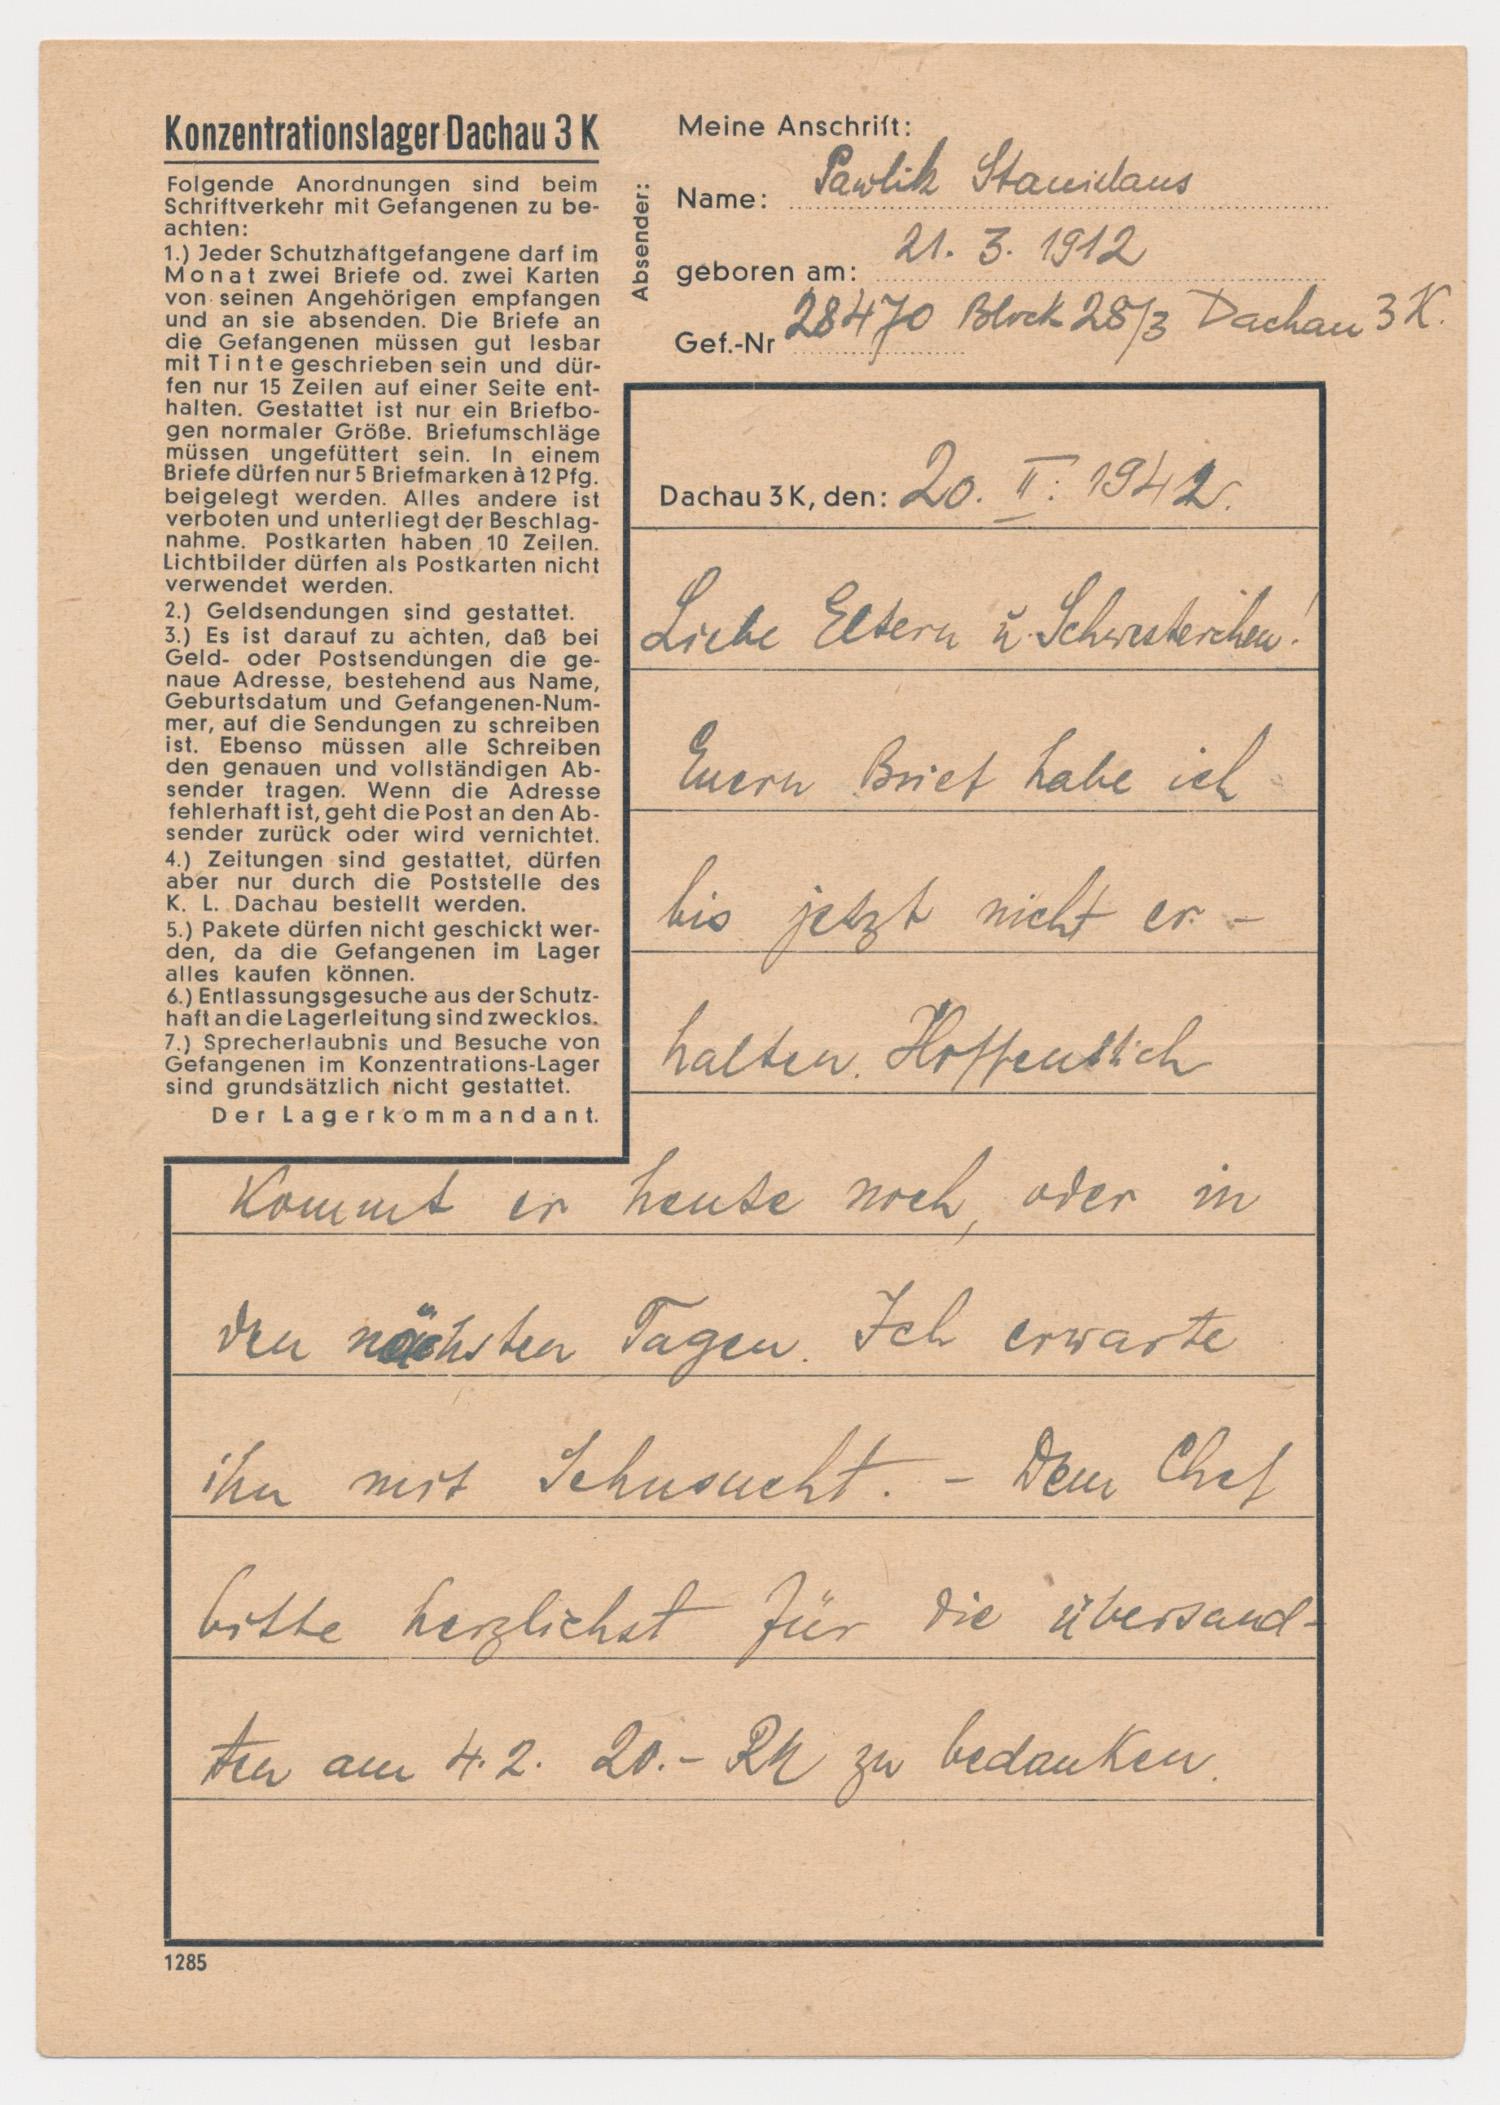 Konzentrationslager Dachau 3 K
Folgende Anordnungen sind beim
Schriftverkehr mit Gefangenen zu be-
achten:
1.) Jeder Schutzhaftgefangene darf im
Monat zwei Briefe od. zwei Karten
von seinen Angehörigen empfangen
und an sie absenden. Die Briefe an
die Gefangenen müssen gut lesbar
mit Tinte geschrieben sein und dür-
fen nur 15 Zeilen auf einer Seite ent-
halten. Gestattet ist nur ein Briefbo-
gen normaler Größe. Briefumschläge
müssen ungefüttert sein. In einem
Briefe dürfen nur 5 Briefmarken à 12 Pfg.
beigelegt werden. Alles andere ist
verboten und unterliegt der Beschlag-
nahme. Postkarten haben 10 Zeilen.
Lichtbilder dürfen als Postkarten nicht
verwendet werden.
2.) Geldsendungen sind gestattet.
3.) Es ist darauf zu achten, daß bei
Geld- oder Postsendungen die ge-
naue Adresse, bestehend aus Name,
Geburtsdatum und Gefangenen-Num-
mer, auf die Sendungen zu schreiben
ist. Ebenso müssen alle Schreiben
den genauen und vollständigen Ab-
sender tragen. Wenn die Adresse
fehlerhaft ist, geht die Post an den Ab-
sender zurück oder wird vernichtet.
4.) Zeitungen sind gestattet, dürfen
aber nur durch die Poststelle des
K. L. Dachau bestellt werden.
5.) Pakete dürfen nicht geschickt wer-
den, da die Gefangenen im Lager
alles kaufen können.
6.) Entlassungsgesuche aus der Schutz-
haft an die Lagerleitung sind zwecklos.
7.) Sprecherlaubnis und Besuche von
Gefangenen im Konzentrations-Lager
sind grundsätzlich nicht gestattet.
Der Lagerkommandant.
Absender:
Meine Anschrift:
Name: Pawlik Stanislaus
geboren am: 21. 3. 1912
Gef.-Nr 28470 Block 28/3 Dachau 3 K.
Dachau 3 K, den: 20. II. 1942.
Liebe Eltern u. Schwesterchen!
Euern Brief habe ich
bis jetzt nicht er-
halten. Hoffentlich
kommt er heute noch, oder in
den nächsten Tagen. Ich erwarte
ihn mit Sehnsucht. - Dem Chef
bitte herzlichst für die übersand-
ten am 4.2. 20.- RM zu bedanken.
1285